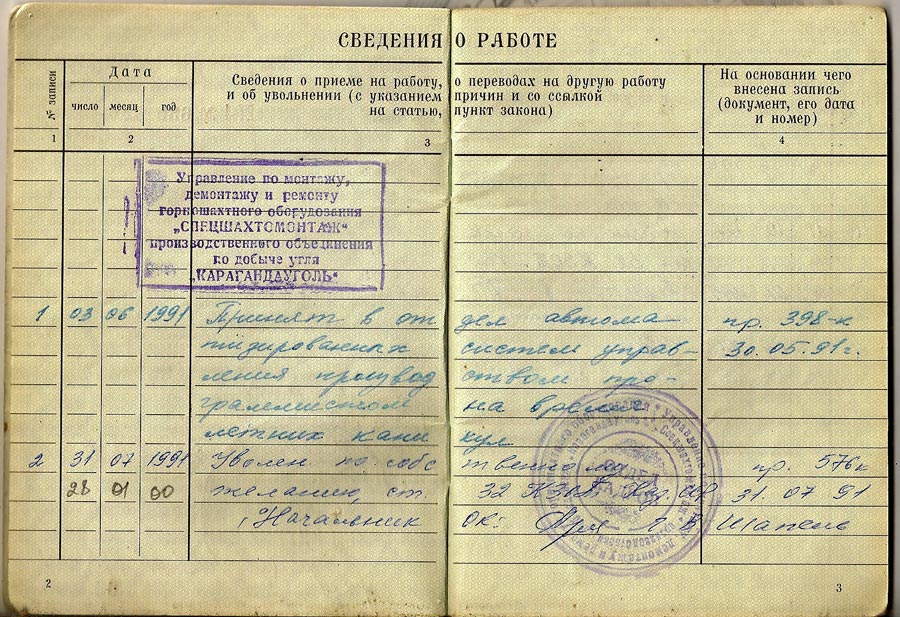 СВЕДЕНИЯ О РАБОТЕ
№ записи
Дата
число месяц год
Сведения о приеме на работу, о переводах на другую работу
и об увольнении (с указанием причин и со ссылкой
на статью, пункт закона)
На основании чего
внесена запись
(документ, его дата
и номер)
1 2 3 4
Управление по монтажу,
демонтажу и ремонту
горношахтного оборудования
„СПЕЦШАХТОМОНТАЖ“
производственного объединения
по добыче угля
„КАРАГАНДАУГОЛЬ“
1 03 06 1991 Принят в отдел автома- пр. 398-к
тизированных систем управ- 30.05.91г.
ления производством про-
граммистом на время
летних каникул
2 31 07 1991 Уволен по собственному пр. 576к
28 01 00 желанию, ст. 32 КЗоТ Каз. ССР 31.07 91
Начальник ОК:
2
3